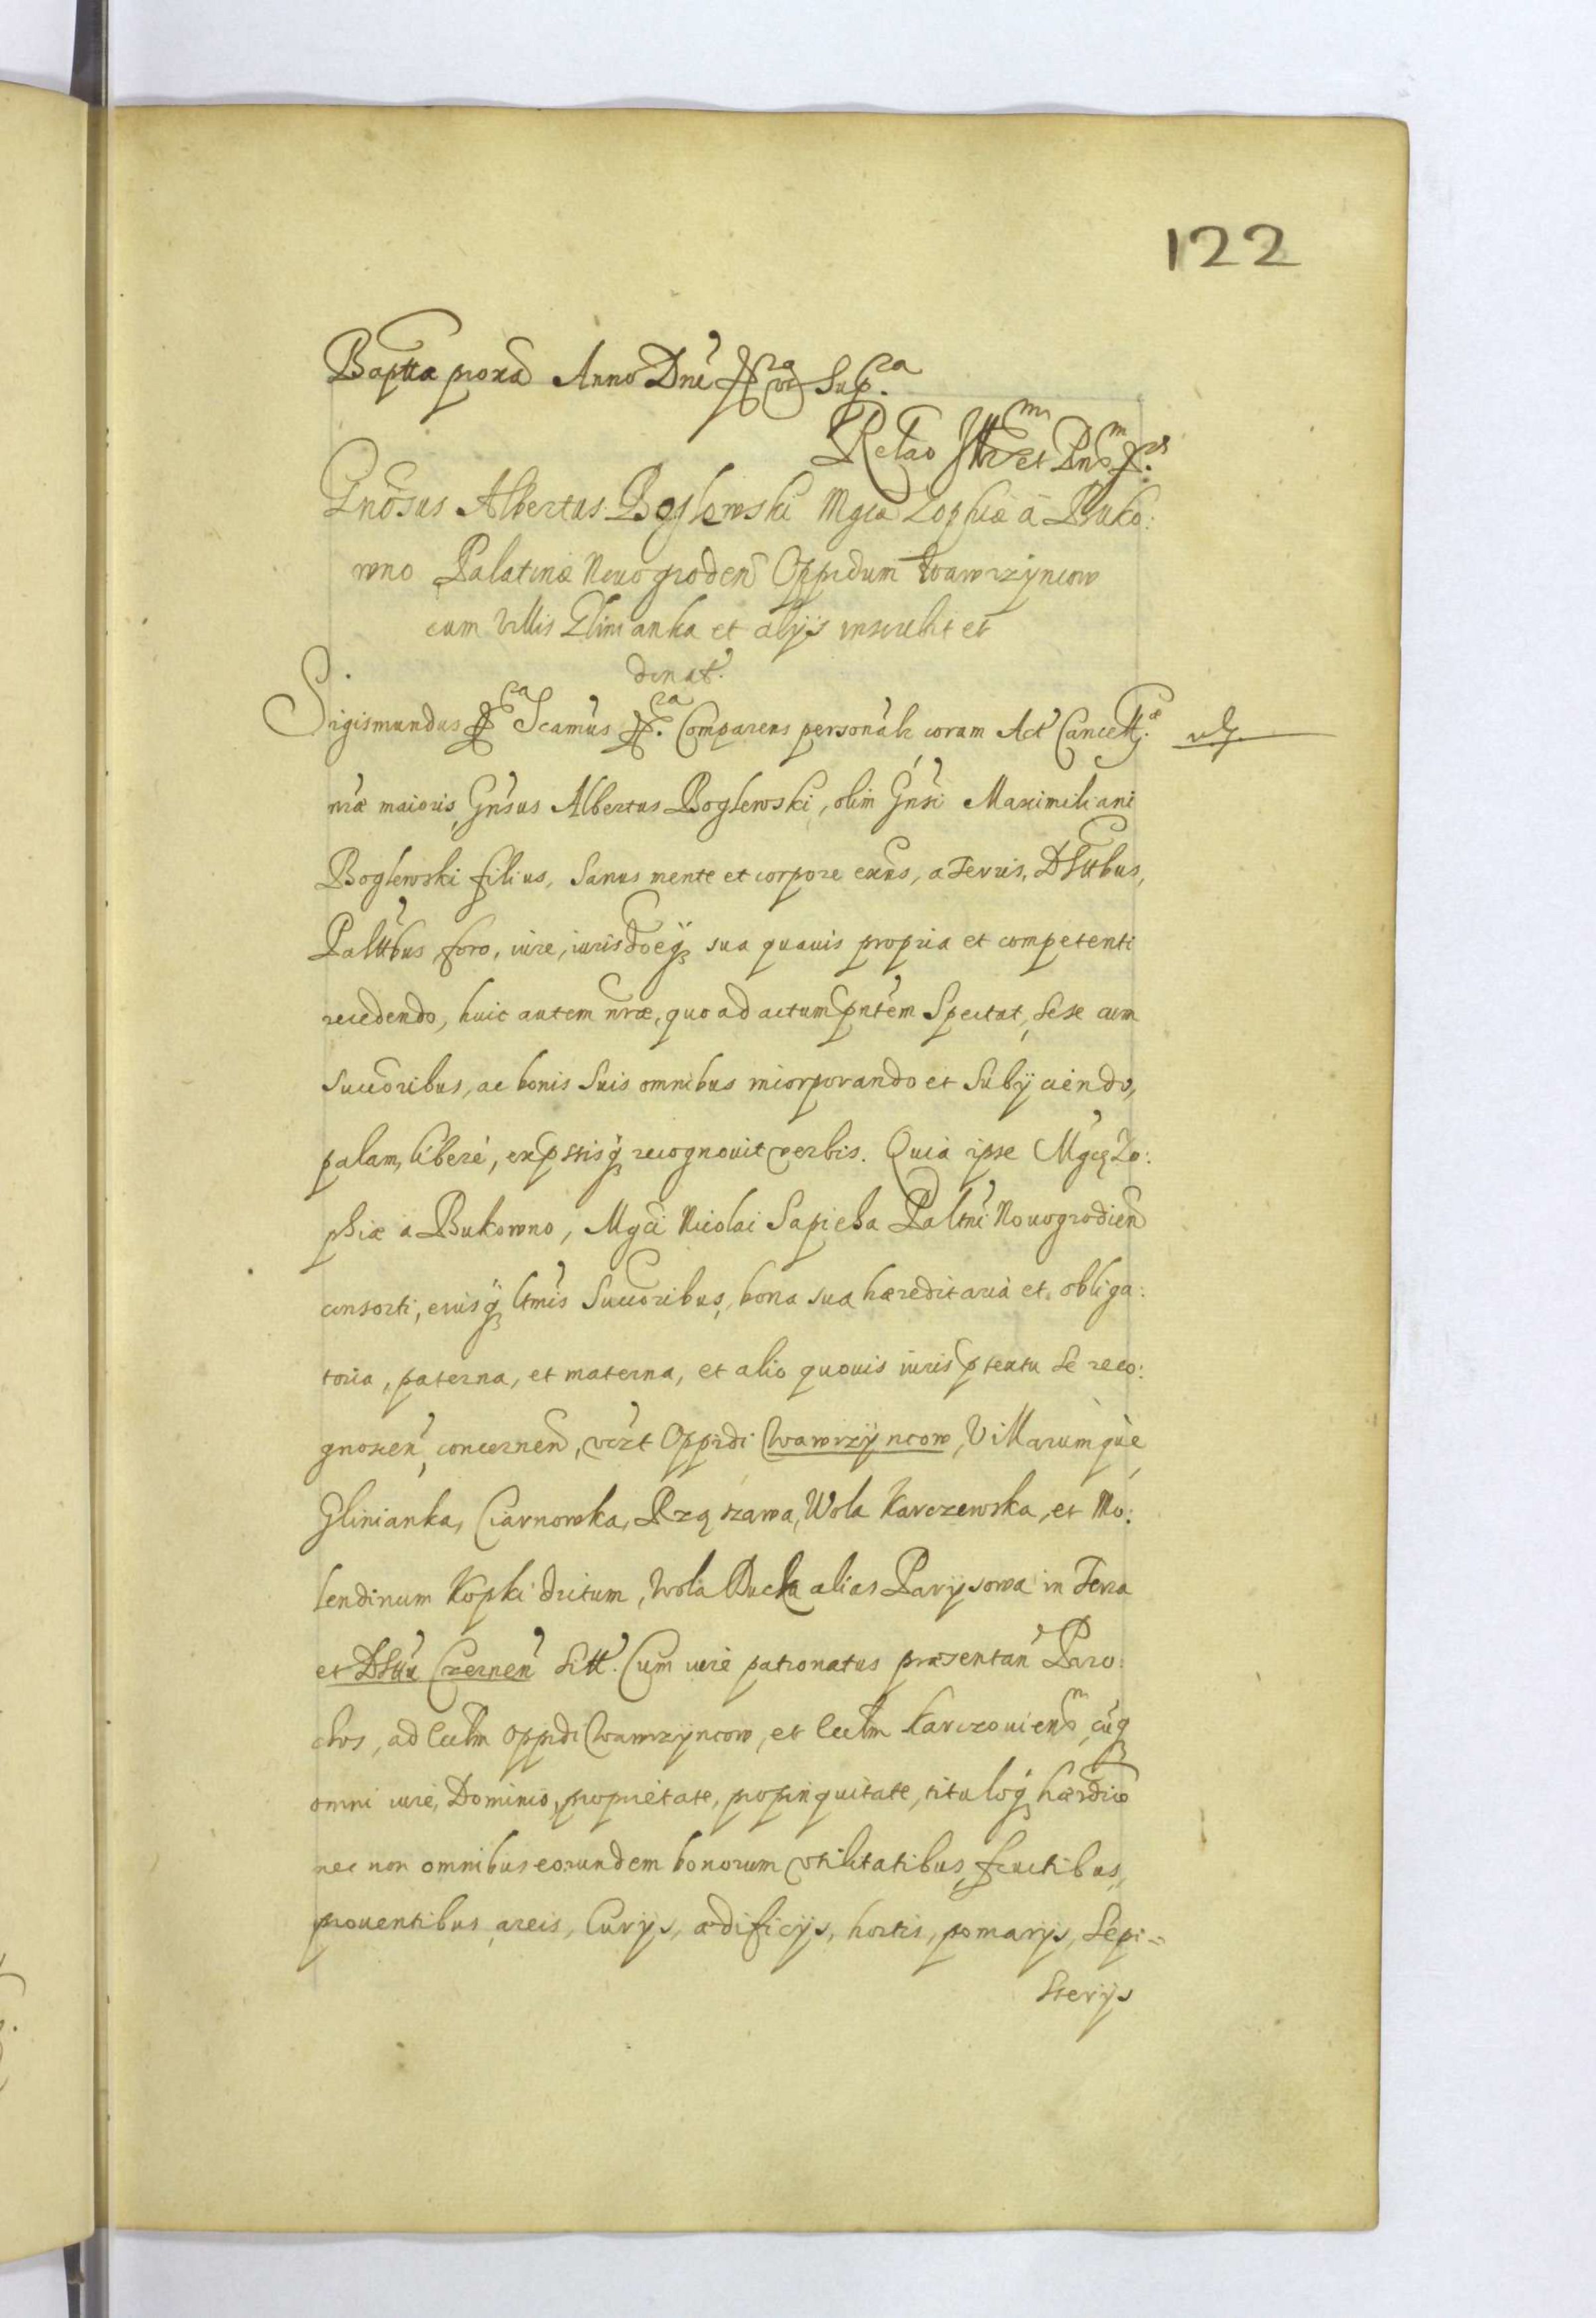 122
Baptta proxa Anno Dni &c. ut Sup.ra
Relao Illr et Dni &c.
Gnosus Albertus Boglewski Mgcæ Zophiæ à Buko:
wno Palatinæ Nouogroden Oppidum Wawrzyncow
cum Villis Glinianka et alijs inscribit et
donat.
Sigismundus &c. Scamus &c. Comparens personalr coram Act Cancell.
nræ maioris, Gnsus Albertus Boglewski, olim Gnsi Maximiliani
Boglewski filius, sanus mente et corpore exns, a Terris, Dsttbus,
Palttbus, foro, iure, iurisdoeq sua quauis propria et competenti
recedendo, huic autem nræ, quo ad actum pntem Spectat, sese cum
succoribus, ac bonis suis omnibus incorporando et subijciendo,
palam, liberè, expssisq recognouit verbis. Quia ipse Mgcæ Zo:
phiæ a Bukowno, Mgci Nicolai Sapieha Paltni Nouogrodien
consorti, eiusq ltmis Succoribus, bona sua hæreditaria et obliga:
toria, paterna, et materna, et alio quouis iuris ptextu se reco:
gnoscen concernen, vczt Oppidi Wawrzyncow, Villarumquè
Glinianka, Ciarnowka, Rząszawa, Wola Karczewska, et Mo:
lendinum Kopki dictum, Wola Ducka alias Parysowa in Terra
et Dsttu Czernen sitt. Cum iure patronatus præsentan Paro:
chos, ad Ecclm oppidi Wawrzyncow, et Ecclm Karczouien, cuq
omni iure, Dominio, proprietate, propinquitate, tituloq hærdrio
nec non omnibus eorundem bonorum vtilitatibus, fructibus,
prouentibus, areis, Curijs, ædificijs, hortis, pomarijs, Sepi=
sterijs